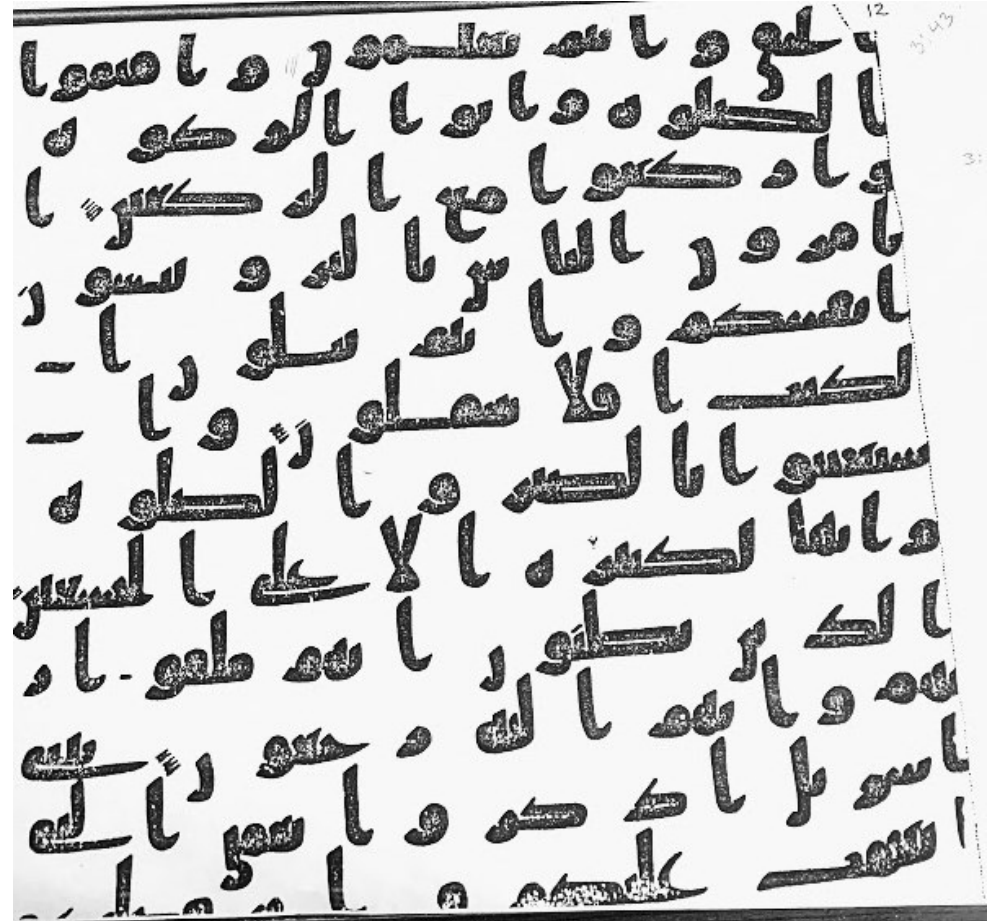 12
3:43
الحق وانتم تعلمون واقيموا
الصلوة واتوا الزكوة
واركعوا مع الركعين ا
تامرون الناس بالبر وتنسون
انفسكم وانتم تتلون ا
لكتب افلا تعقلون وا
ستعينوا بالصبر والصلوة
وانها لكبيرة الا على الخشعين
الذين يظنون انهم ملقوا ر
بهم وانهم اليه رجعون يبني
اسريل اذكروا نعمتي التي
انعمت عليكم و
3: